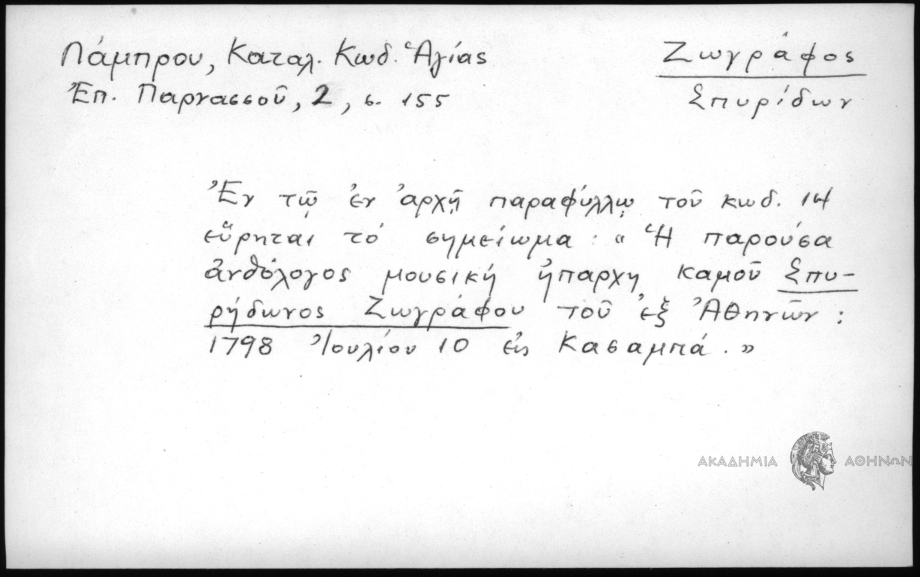 Λάμπρου, Καταλ. Κωδ. Ἁγίας
Ἐπ. Παρνασσοῦ, 2, σ. 155
Ζωγράφος
Σπυρίδων
Ἐν τῷ ἐν ἀρχῇ παραφύλλῳ τοῦ κωδ. 14
εὕρηται τό σημείωμα : « Ἡ παροῦσα
ἀνθόλογος μουσική ἡπαρχη καμοῦ Σπυ-
ρήδωνος Ζωγράφου τοῦ ἐξ Ἀθηνῶν :
1798 Ἰουλίου 10 εἰς Κασαμπά . »
ΑΚΑΔΗΜΙΑ ΑΘΗΝΩΝ